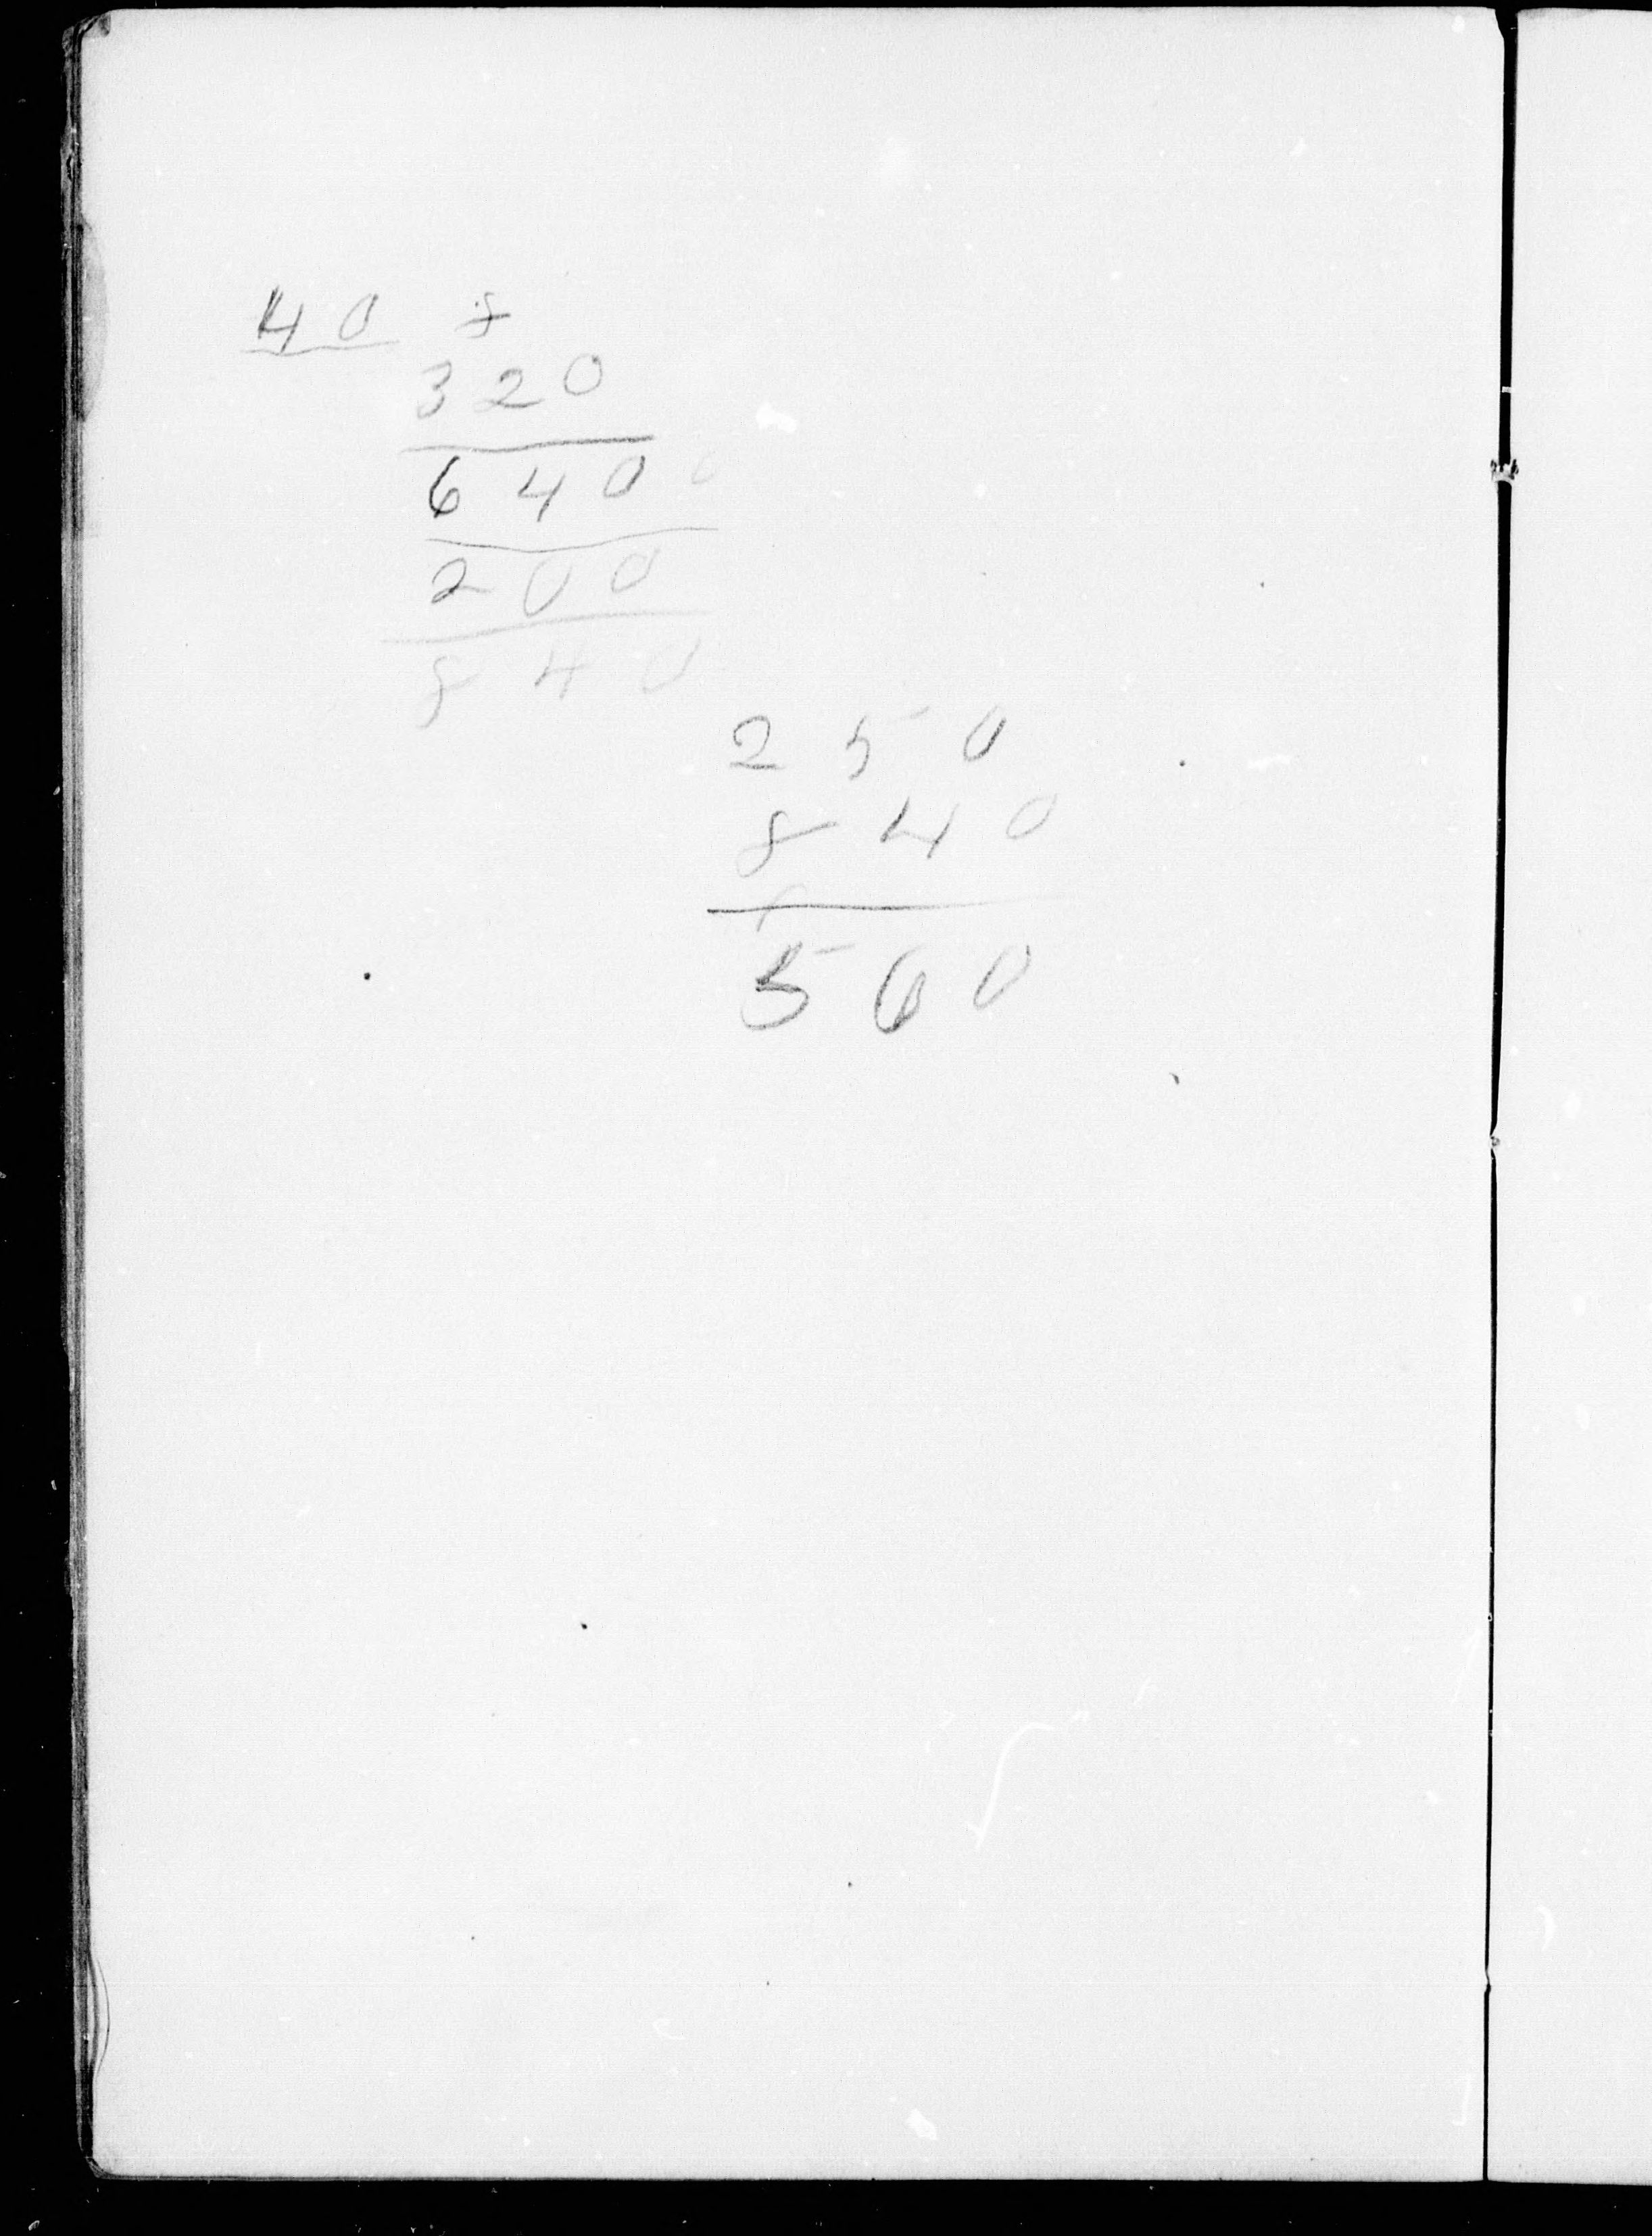 40 8
320
6400
200
840
250
840
560